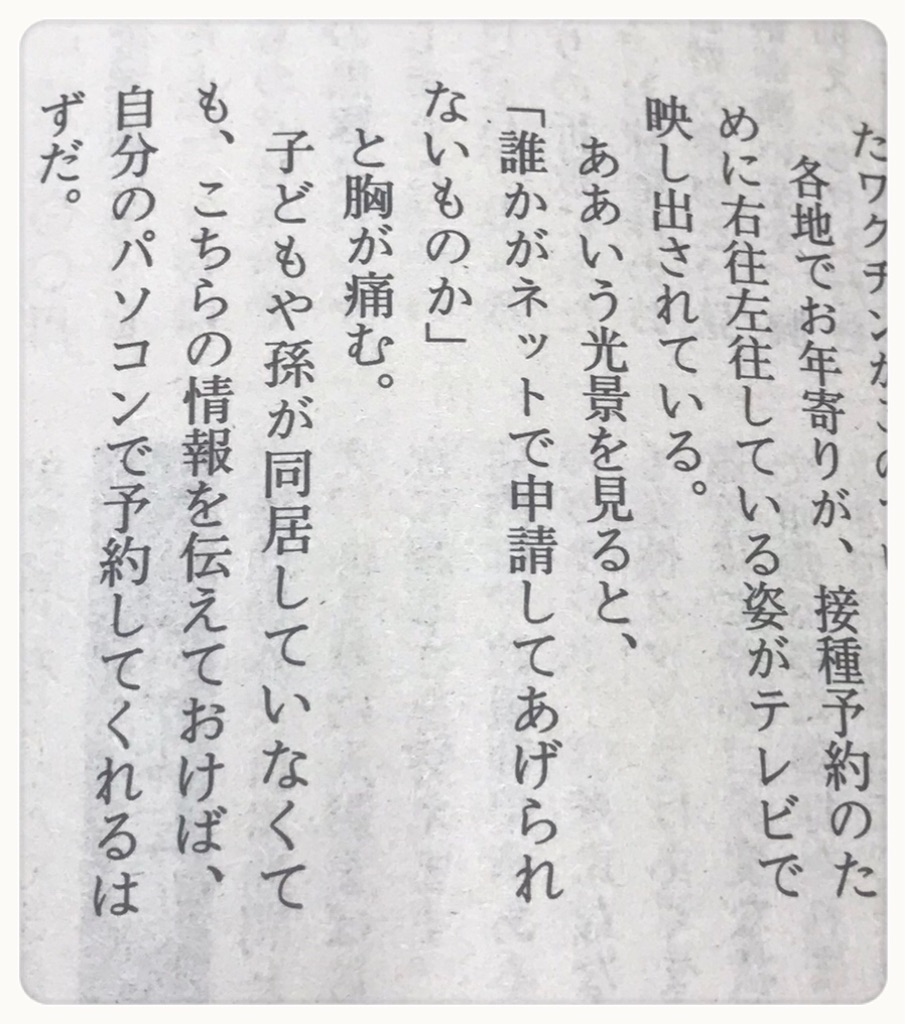 たワクチンが
各地でお年寄りが、接種予約のた
めに右往左往している姿がテレビで
映し出されている。
ああいう光景を見ると、
「誰かがネットで申請してあげられ
ないものか」
と胸が痛む。
子どもや孫が同居していなくて
も、こちらの情報を伝えておけば、
自分のパソコンで予約してくれるは
ずだ。